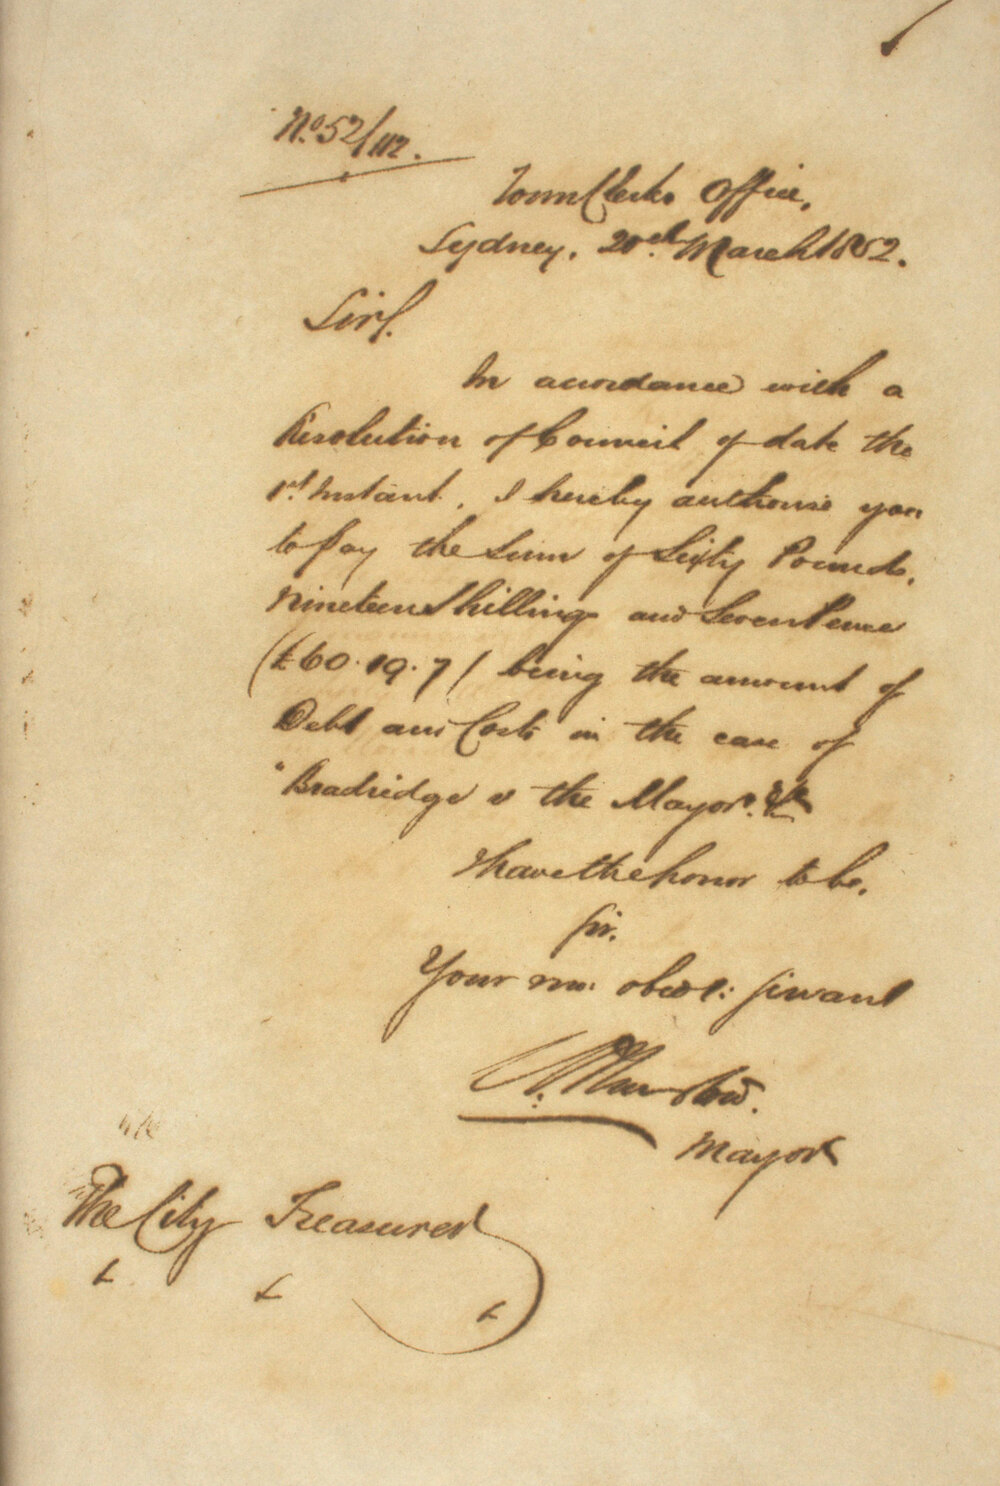 No. 52/112.
Town Clerks Office,
Sydney, 20th March 1852.
Sir,
In accordance with a
Resolution of Council of date the
1st Instant, I hereby authorise you
to pay the Sum of Sixty Pounds,
Nineteen Shillings and Seven Pence
(£60.19.7) being the amount of
Debt and Costs in the case of
"Bradridge v the Mayor &c
I have the honor to be,
Sir,
Your mo: obedt: Servant
Mayor
The City Treasurer